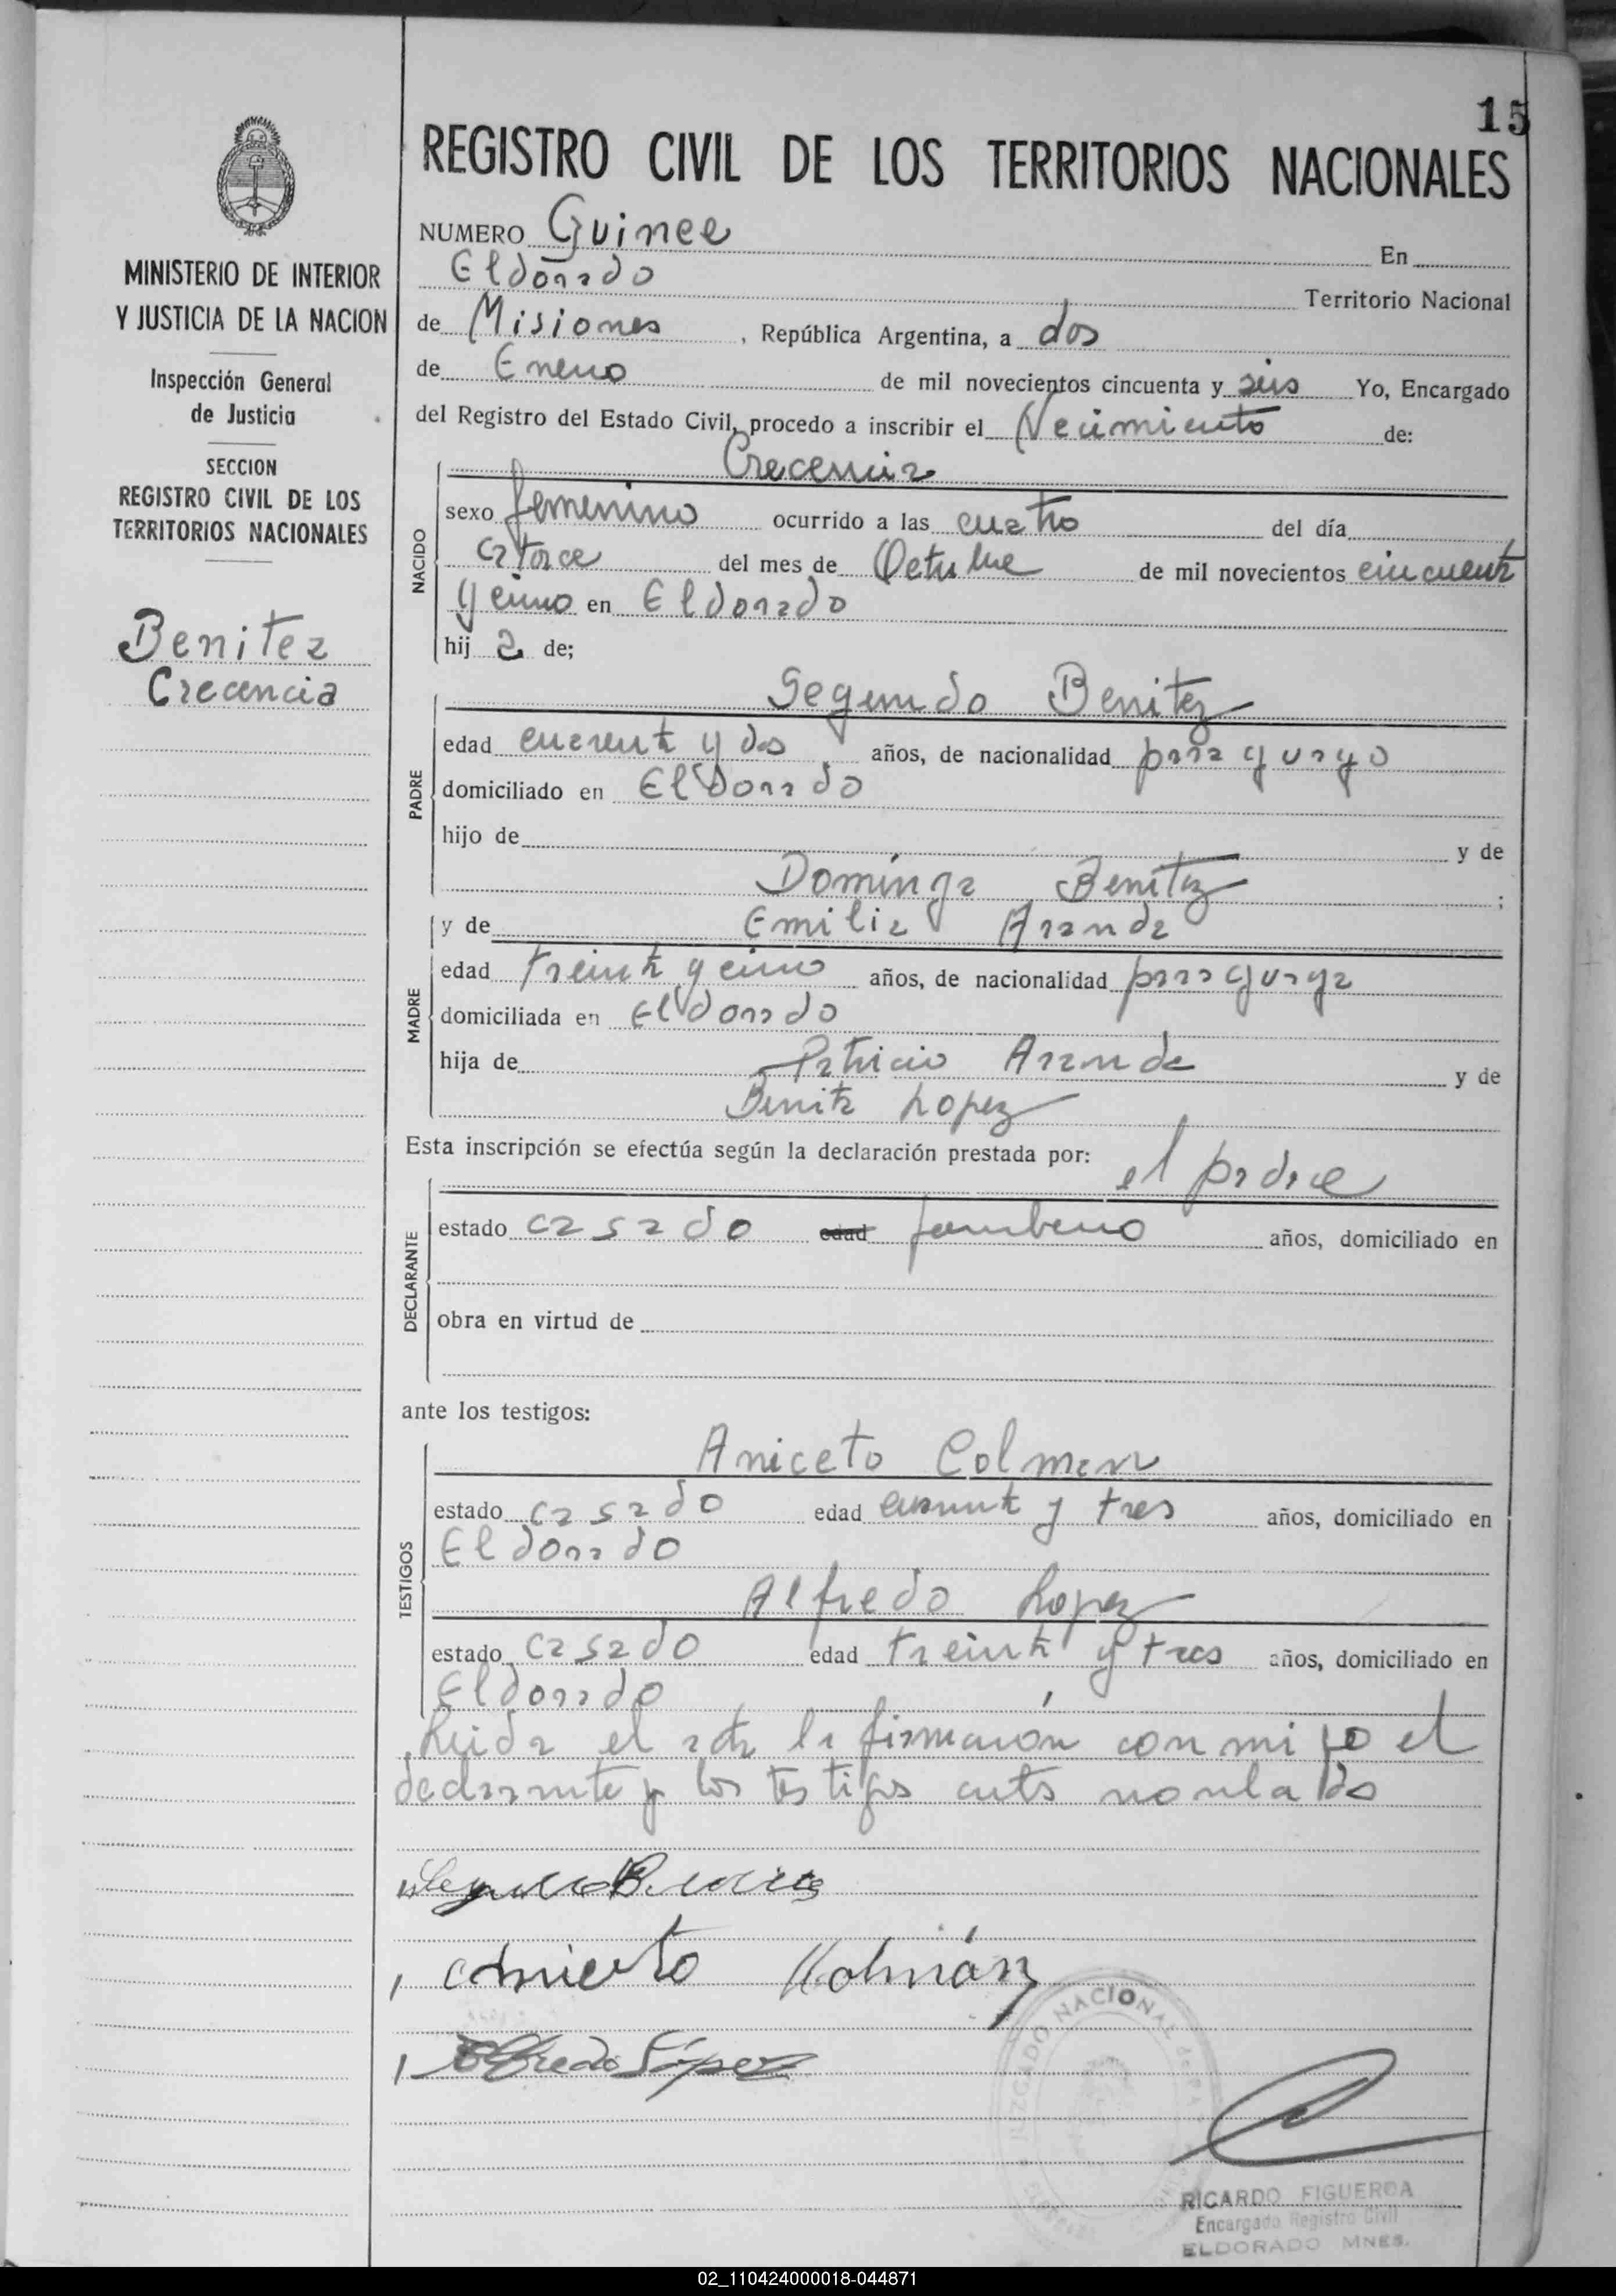 15
REGISTRO CIVIL DE LOS TERRITORIOS NACIONALES
MINISTERIO DE INTERIOR
Y JUSTICIA DE LA NACION
Inspección General
de Justicia
SECCION
REGISTRO CIVIL DE LOS
TERRITORIOS NACIONALES
Benitez
Crecencia
NUMERO Quince En
Eldorado Territorio Nacional
de Misiones, República Argentina, a dos
de Enero de mil novecientos cincuenta y seis Yo, Encargado
del Registro del Estado Civil, procedo a inscribir el Nacimiento de:
Crecencia
NACIDO
sexo femenino ocurrido a las cuatro del día
catorce del mes de Octubre de mil novecientos cincuenta
y cinco en Eldorado
hij a de;
Segundo Benitez
PADRE
edad cuarenta y dos años, de nacionalidad paraguayo
domiciliado en Eldorado
hijo de y de
Dominga Benitez ;
y de Emilia Aranda
MADRE
edad treinta y cinco años, de nacionalidad paraguaya
domiciliada en Eldorado
hija de Patricio Aranda y de
Benita Lopez
Esta inscripción se efectúa según la declaración prestada por:
el padre
DECLARANTE
estado casado edad jornalero años, domiciliado en
obra en virtud de
ante los testigos:
Aniceto Colman
TESTIGOS
estado casado edad cuarenta y tres años, domiciliado en
Eldorado
Alfredo Lopez
estado casado edad treinta y tres años, domiciliado en
Eldorado
Leida el acta la firmaron conmigo el
declarante y los testigos ants nombrados
Segundo Benitez
Colmán
Alfredo López
JUZGADO NACIONAL DE PAZ
RICARDO FIGUEROA
Encargado Registro Civil
ELDORADO MNES.
02_110424000018-044871